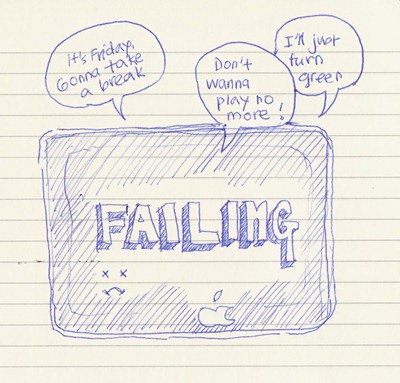 It's Friday.
Gonna take
a break
Don't
wanna
play no
more!
I'll just
turn
green
FAILING